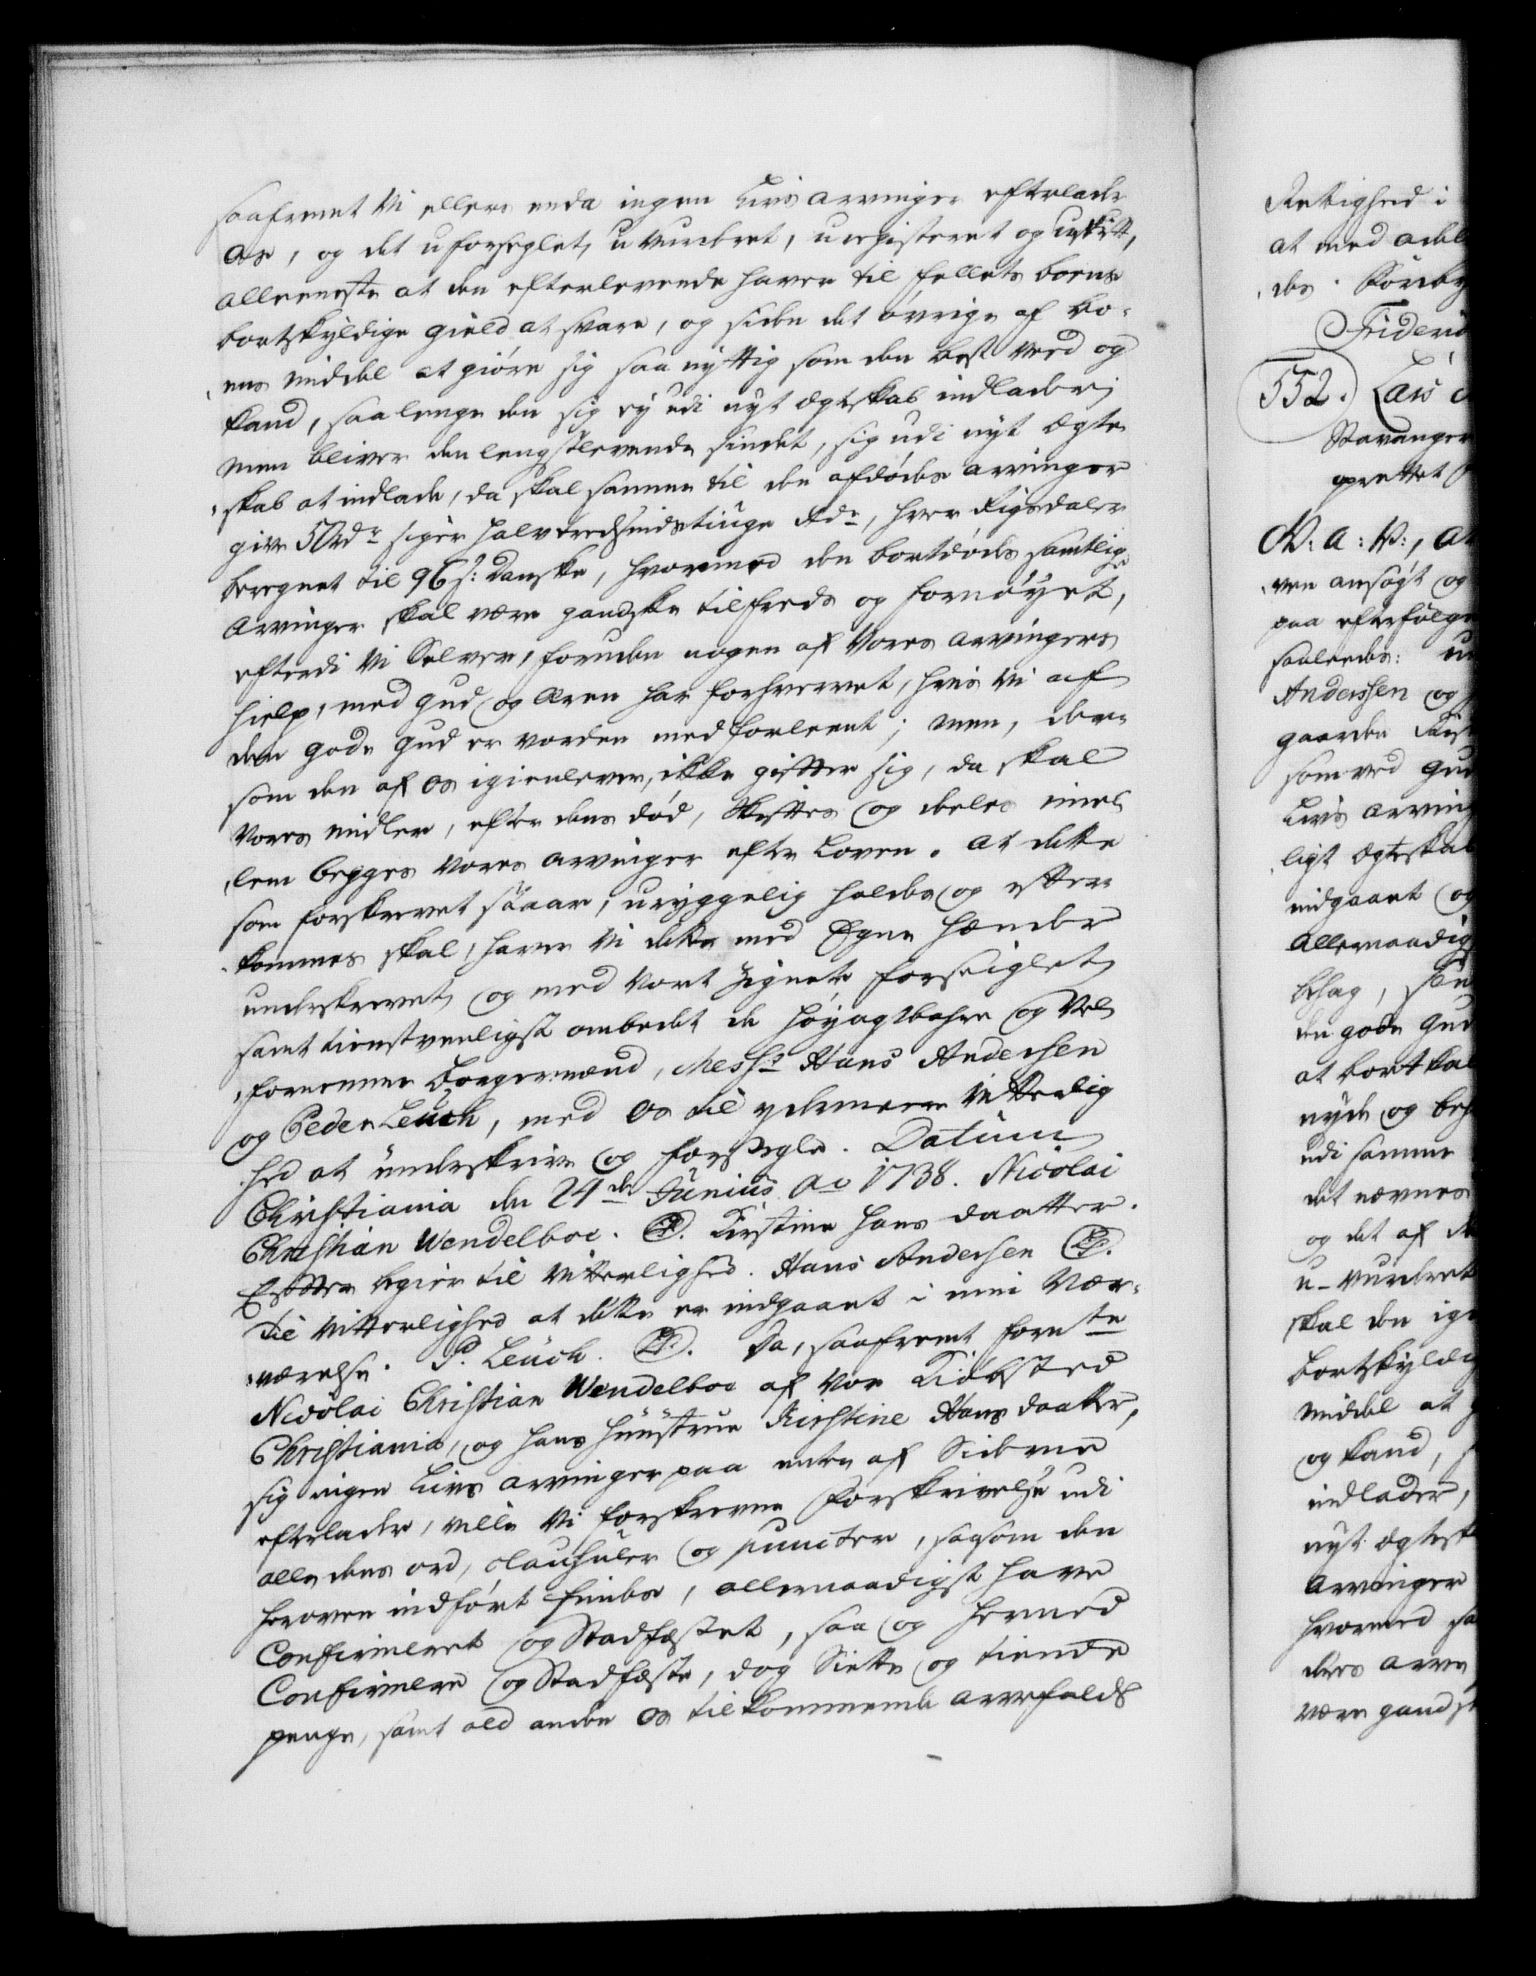 saafremt Vi ellers enda ingen Livs arvinger efterlader
os, og det uforseglet, u vurderet, u registeret og uskift,
alleeneste at den efterlevende haver til fellets boens
bortskyldige gield at svare, og siden det øvrige af bo-
ens middel at giøre sig saa nyttig som den best veed og
kand, saalenge den sig ey udi nyt Egteskab indlader;
men bliver den lengstlevende sindet, sig udi nyt Egte-
skab at indlade, da skal samme til den afdødes arvinger
give 50 Rdr siger halvtredsindstiuge Rdr, hver Rigsdaler
beregnet til 96 s: danske, hvormed den bortdødes samtlige
Arvinger skal være gandske tilfreds og fornøyet,
efterdi Vi Selver, foruden nogen af Vores arvingers
hielp, med gud og Æren har forhvervet, hvis Vi af
den gode gud er vorden med forleent; men, der-
som den af os igienlever, ikke gifter sig, da skal
Vores midler, efter dens død, skiftes og deeles imel-
lem begges Vores arvinger efter Loven. At dette
som forskrevet staar, uryggelig holdes og efter-
kommes skal, haver Vi dette med Egne Hænder
underskrevet og med Vort Zignete forseiglet
samt tienstvenligst ombedet de Høyagtbahre og Vel-
fornemme Borgermænd, Messrs Hans Andersen
og Peder Leuch, med os til ydermeere Vitterlig-
hed at underskrive og forsegle. Datum
Christiania den 24de Junius Ao 1738. Nicolai
Christian Wendelboe. (L.S.) Kirstine Hans daatter.
Efter begier til Vitterlighed. Hans Andersen (L.S.)
Til Vitterlighed at dette er indgaaet i min Nær-
værelse. P. Leuch. (L.S.) Da, saafremt fornte
Nicolai Christian Wendelboe af Vor Kiøbsted
Christiania, og hans Hüustrue Kirstine Hans daatter,
sig ingen Livs arvinger paa enten af Siderne
efterlader, ville Vi forskrevne Forskrivelse udi
alle dens ord, clausuler og puncter, saasom den
heroven indført findes, allernaadigst have
Confirmeret og Stadfæstet, saa og hermed
Confirmere og Stadfæste, dog Siette og tiende
penge, samt ald anden os tilkommende arvefalds
Rettighed i
at med adel
des. Kiøeby
Frideric
552. Lars
Stavanger
oprettet
W: A: V:, At
ven ansøgt og
paa efterfølge
saaleedes:
Anderssen og
gaarden
som ved Gud
Livs arving
ligt Egteskab
indgaaet og
Allernaadigst
behag,
den gode Gud
at bortkal
nyde og beh
udi samme
det nævnes
og det af
u-vurderet
skal den ige
bortskyldig
middel at
og kand,
indlader,
nyt Egtesk
Arvinger
hvormed sa
ders arv
være gandsk